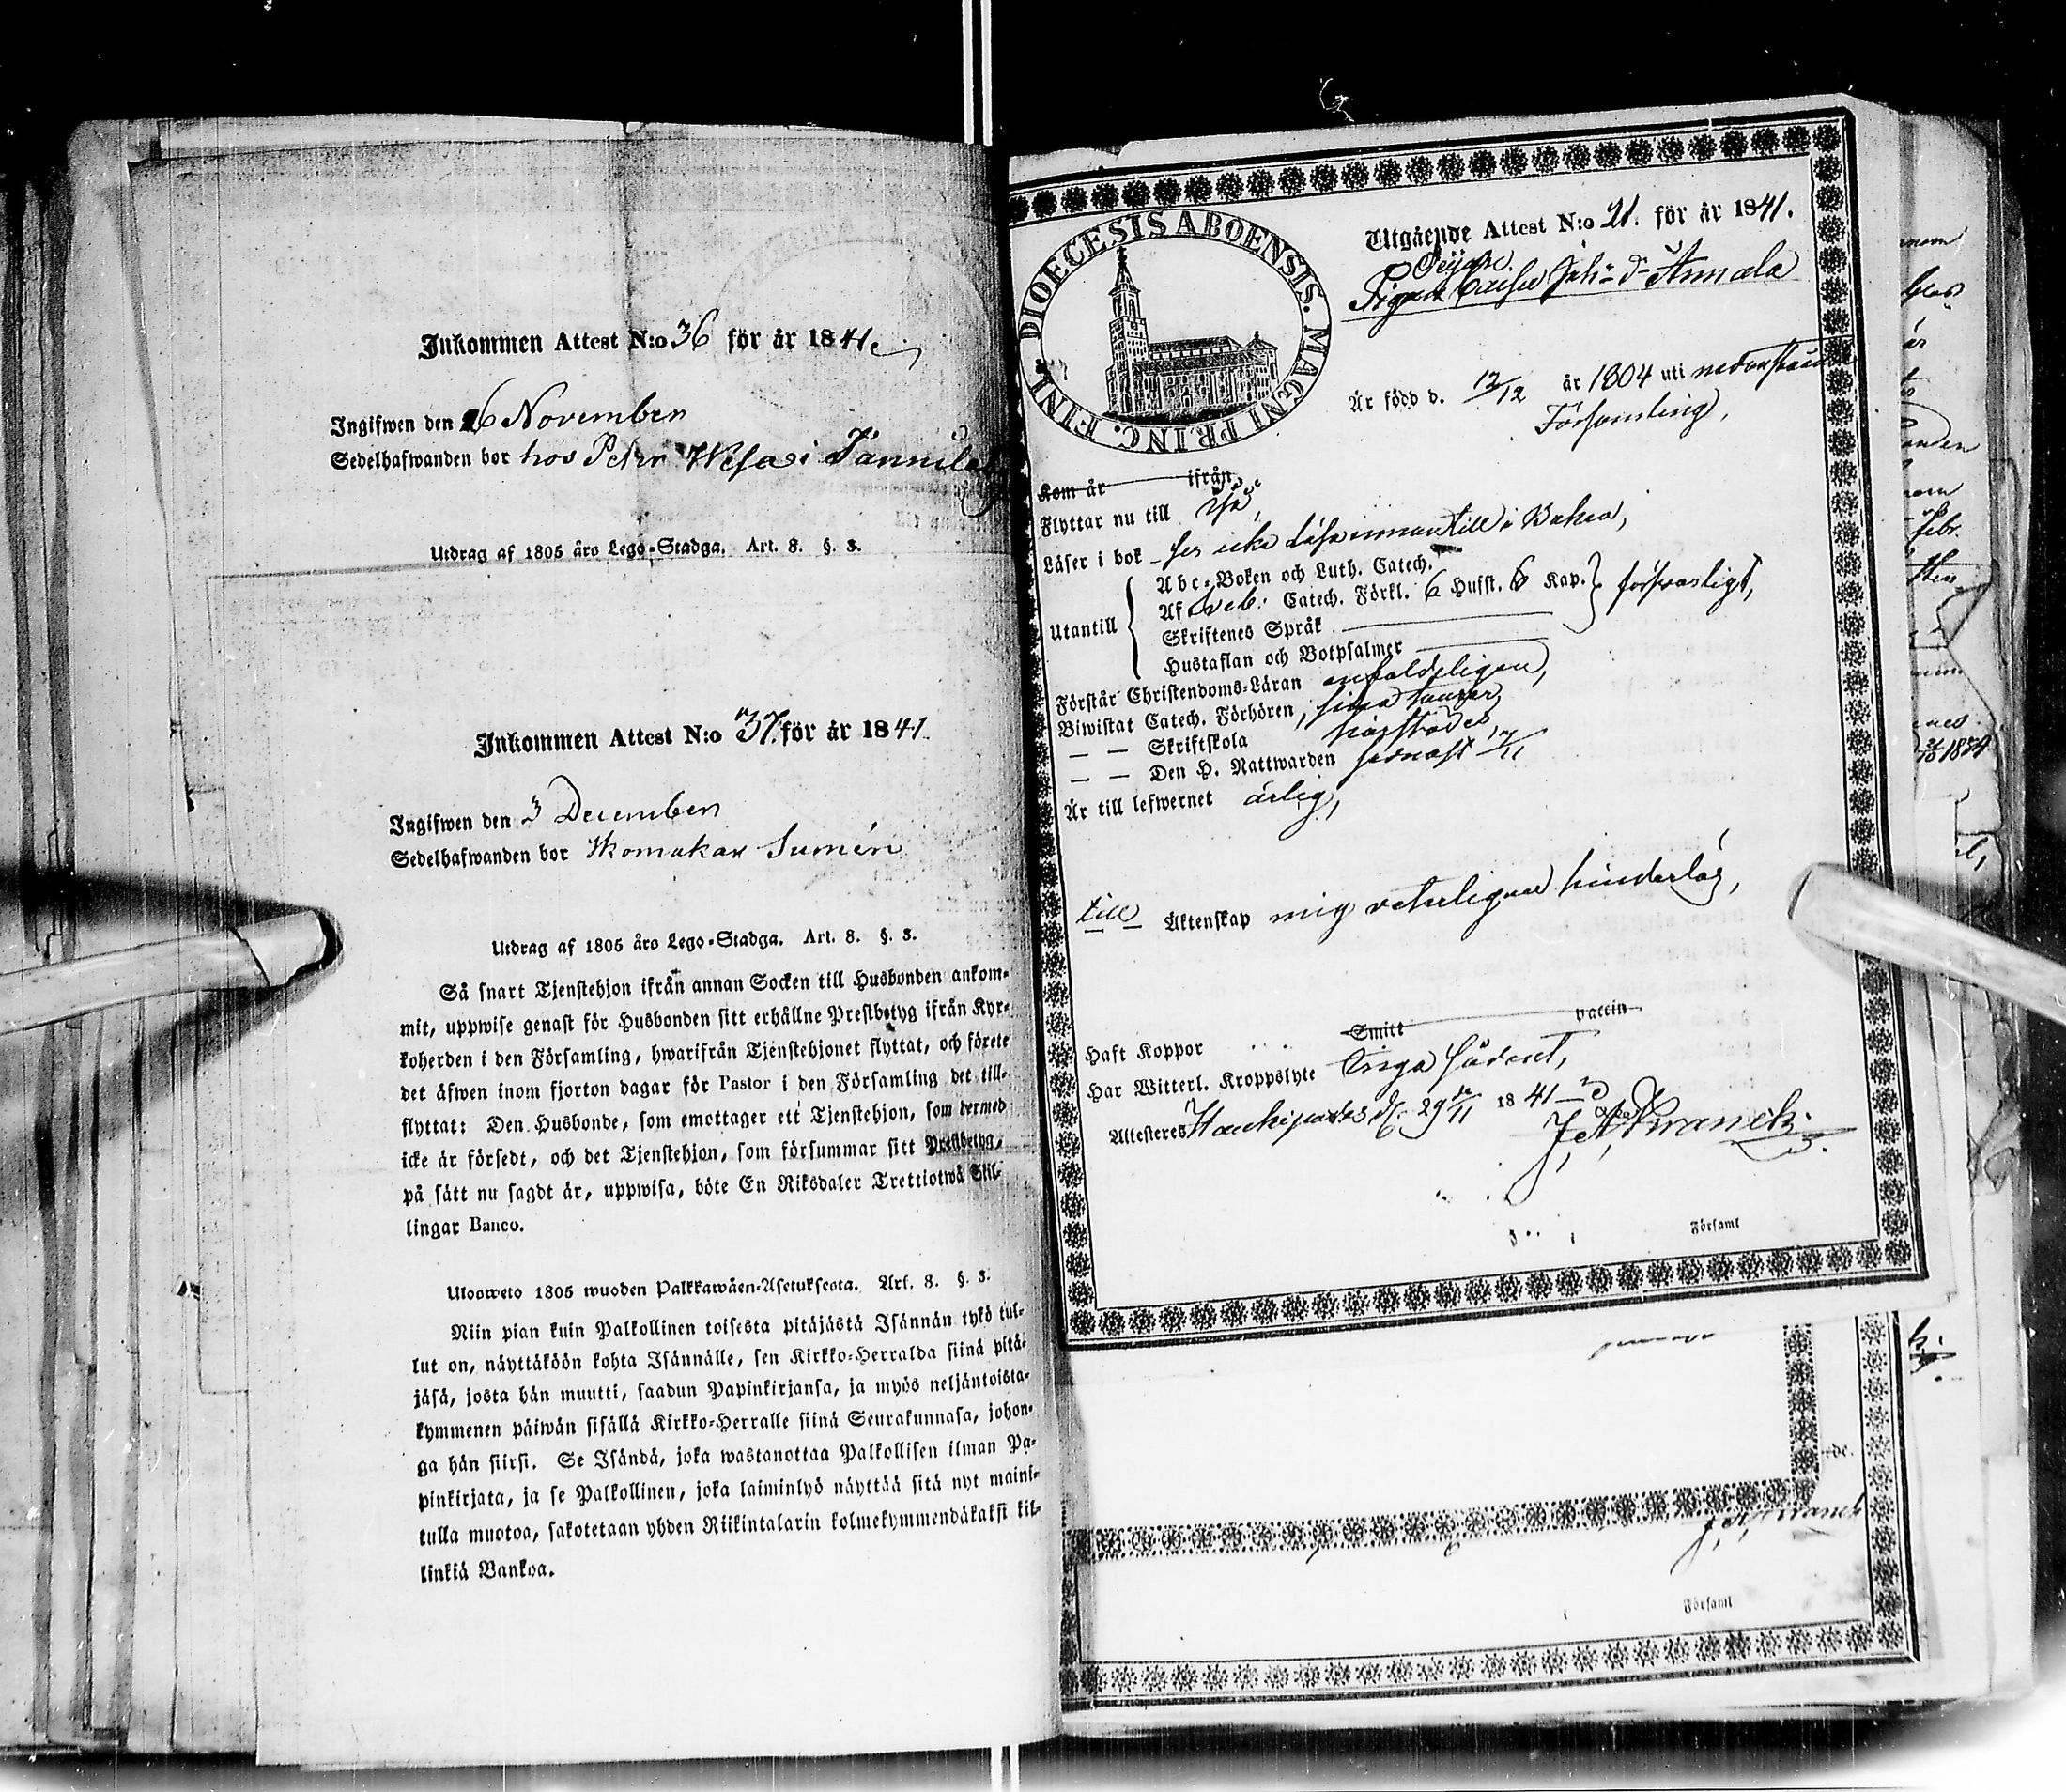 Inkommen Attest N:o 36 för år 1841.
Ingifwen den 26 November
Sedelhafwanden bor hos Petter Wesa i
Utdrag af 1805 års Lego-Stadga. Art. 8. §. 3.
Inkommen Attest N:o 37. för år 1841.
Ingifwen den 3 December
Sedelhafwanden bor Skomakar Sumén
Utdrag af 1805 års Lego-Stadga. Art. 8. §. 3.
Så snart Tjenstehjon ifrån annan Socken till Husbonden ankom-
mit, uppwise genast för Husbonden sitt erhållne Prestbetyg ifrån Kyr-
koherden i den Församling, hwarifrån Tjenstehjonet flyttat, och förete
det äfwen inom fjorton dagar för Pastor i den Församling det till-
flyttat: Den Husbonde, som emottager ett Tjenstehjon, som dermed
icke är försedt, och det Tjenstehjon, som försummar sitt Prestbetyg,
på sätt nu sagdt är, uppwisa, böte En Riksdaler Trettiotwå Skil-
lingar Banco.
Ulosweto 1805 wuoden Palkkawäen-Asetuksesta. Art. 8. §. 3.
Niin pian kuin Palkollinen toisesta pitäjästä Isännän tykö tul-
lut on, näyttäköön kohta Isännälle, sen Kirkko-Herralda siinä pitä-
jäsä, josta hän muutti, saadun Papinkirjansa, ja myös neljäntoista-
kymmenen päiwän sisällä Kirkko-Herralle siinä Seurakunnasa, johon-
ga hän siirsi. Se Isändä, joka wastanottaa Palkollisen ilman Pa-
pinkirjata, ja se Palkollinen, joka laiminlyö näyttää sitä nyt maini-
tulla muotoa, sakotetaan yhden Riikintalarin kolmekymmendäkaksi kil-
linkiä Bankoa.
DIOECESIS ABOENSIS. MAGNI PRINC. FINL.
Utgående Attest N:o 21. för år 1841.
Pigan Caisa Joh:s d:r Annala
Är född d. 12/12 år 1804 uti nedanstående
Församling,
Kom år ifrån
Flyttar nu till
Läser i bok ser icke läsa innantill i Boken,
Utantill
Abc-Boken och Luth. Catech.
Af Sveb. Catech. Förkl. 6 Hufst. 6 Kap. försvarligt,
Skriftenes Språk
Hustaflan och Botpsalmer
Förstår Christendoms-Läran enfaldeligen,
Biwistat Catech. Förhören, sina tourer
— — Skriftskola
— — Den H. Nattwarden sednast
Är till lefwernet ärlig,
till Äktenskap mig veterligen hinderlös,
Haft Koppor Smitt vaccin
Har Witterl. Kroppslyte Inga sådant,
Attesteres Honkijoki d. 29/11 1841
J. A. Kranck.
Församl
de.
Kranck
Församl